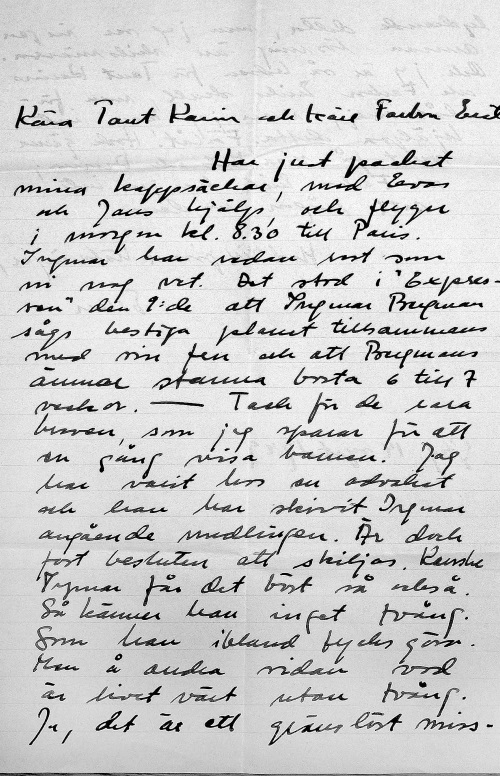 Kära Tant Karin och käre Farbror Erik
Har just packat
mina kappsäckar, med Evas
och Jans hjälp, och flyger
i morgon kl. 8.30 till Paris.
Ingmar har redan rest som
ni nog vet. Det stod i "Expres-
sen" den 2:de att Ingmar Bergman
sågs bestiga planet tillsammans
med sin fru och att Bergmans
ämnar stanna borta 6 till 7
veckor. — Tack för de rara
breven, som jag sparar för att
en gång visa barnen. Jag
har varit hos en advokat
och han har skrivit Ingmar
angående medlingen. Är dock
fast besluten att skiljas. Kanske
Ingmar får det bäst så också.
Så känner han inget tvång.
Som han ibland tycks göra.
Men å andra sidan vad
är livet värt utan tvång.
Ja, det är ett gränslöst miss-